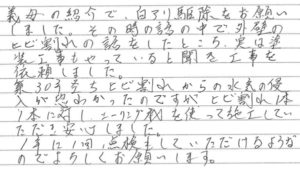 義母の紹介で、白アリ駆除をお願い
しました。その時の話の中で外壁の
ヒビ割れの話をしたところ、実は塗
装工事もやっていると聞き工事を
依頼しました。
築30年立ちヒビ割れからの水気の侵
入が恐れかったのですが ヒビ割れ1本
1本に対し、シーリング剤を使って施工してい
ただき安心しました。
1年に1回点検をしていただけるような
のでよろしくお願いします。